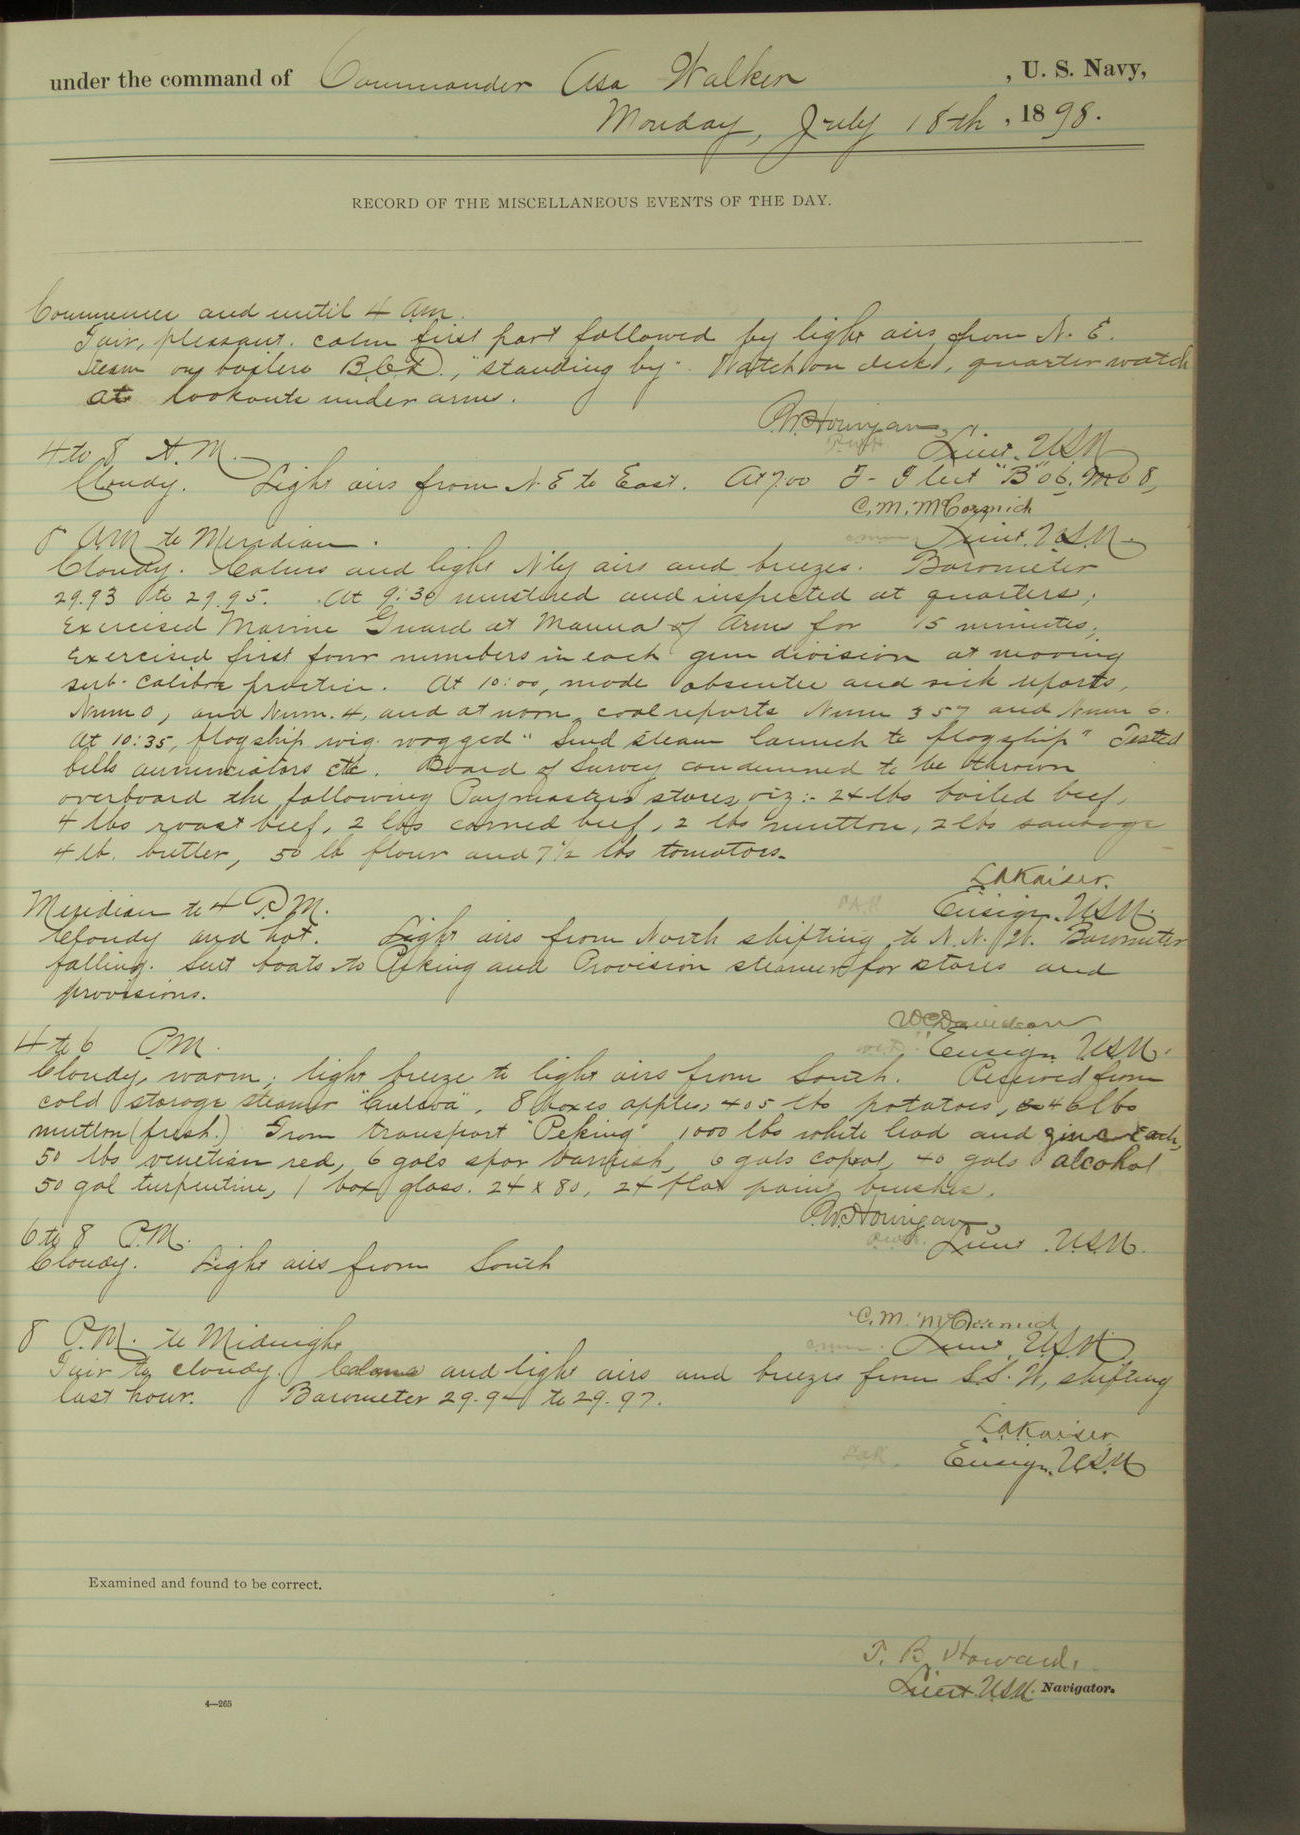 under the command of Commander Asa Walker , U. S. Navy,
Monday, July 18th , 1898.
RECORD OF THE MISCELLANEOUS EVENTS OF THE DAY.
Commence and until 4 am.
Fair, pleasant. calm first part followed by light airs from N. E.
Steam on boilers B.C.D., "standing by". Watch on deck, quarter watch
at lookouts under arms.
Lieut. USN
4 to 8 A.M.
Cloudy. Light airs from N E to East. At 7.00
C. M. McCormick
Lieut. U.S.N.
8 AM to Meridian.
Cloudy. Calms and light N'ly airs and breezes. Barometer
29.93 to 29.95. At 9:30 mustered and inspected at quarters;
Exercised Marine Guard at Manual of Arms for 15 minutes;
Exercised first four numbers in each gun division at moving
sub-calibre practice. At 10:00, made absentee and sick reports,
Num 0, and Num. 4, and at noon coal reports Num 357 and Num 0.
At 10:35, flagship wig wagged "Send steam launch to flagship" Tested
bells annunciators etc. Board of Survey condemned to be thrown
overboard the following Paymasters stores, viz:- 24 lbs boiled beef,
4 lbs roast beef, 2 lbs corned beef, 2 lbs mutton, 2 lbs sausage
4 lb. butter, 50 lb flour and 7½ lbs tomatoes.
L A Kaiser.
Ensign. USN.
Meridian to 4 P.M.
Cloudy and hot. Light airs from North shifting to N. N. W. Barometer
falling. Sent boats to Peking and Provision steamer for stores and
provisions.
W C Davidson
Ensign USN.
4 to 6 PM.
Cloudy, warm; light breeze to light airs from South. Received from
cold storage steamer "Culgoa", 8 boxes apples, 405 lbs potatoes, 646 lbs
mutton (fresh.) From transport "Peking" 1000 lbs white lead and zinc each,
50 lbs venetian red, 6 gals spar varnish, 6 gals copal, 40 gals alcohol
50 gal turpentine, 1 box glass. 24 x 80, 24 flat paint brushes.
Lieut U.S.N.
6 to 8 P.M.
Cloudy. Light airs from South
C. M. McCormick
Lieut. USN
8 P.M. to Midnight
Fair to cloudy. Calms and light airs and breezes from S.S. W, shifting
last hour. Barometer 29.94 to 29.97.
L A Kaiser
Ensign. U.S.N
Examined and found to be correct.
T. B. Howard,
Lieut USN. Navigator.
4—265